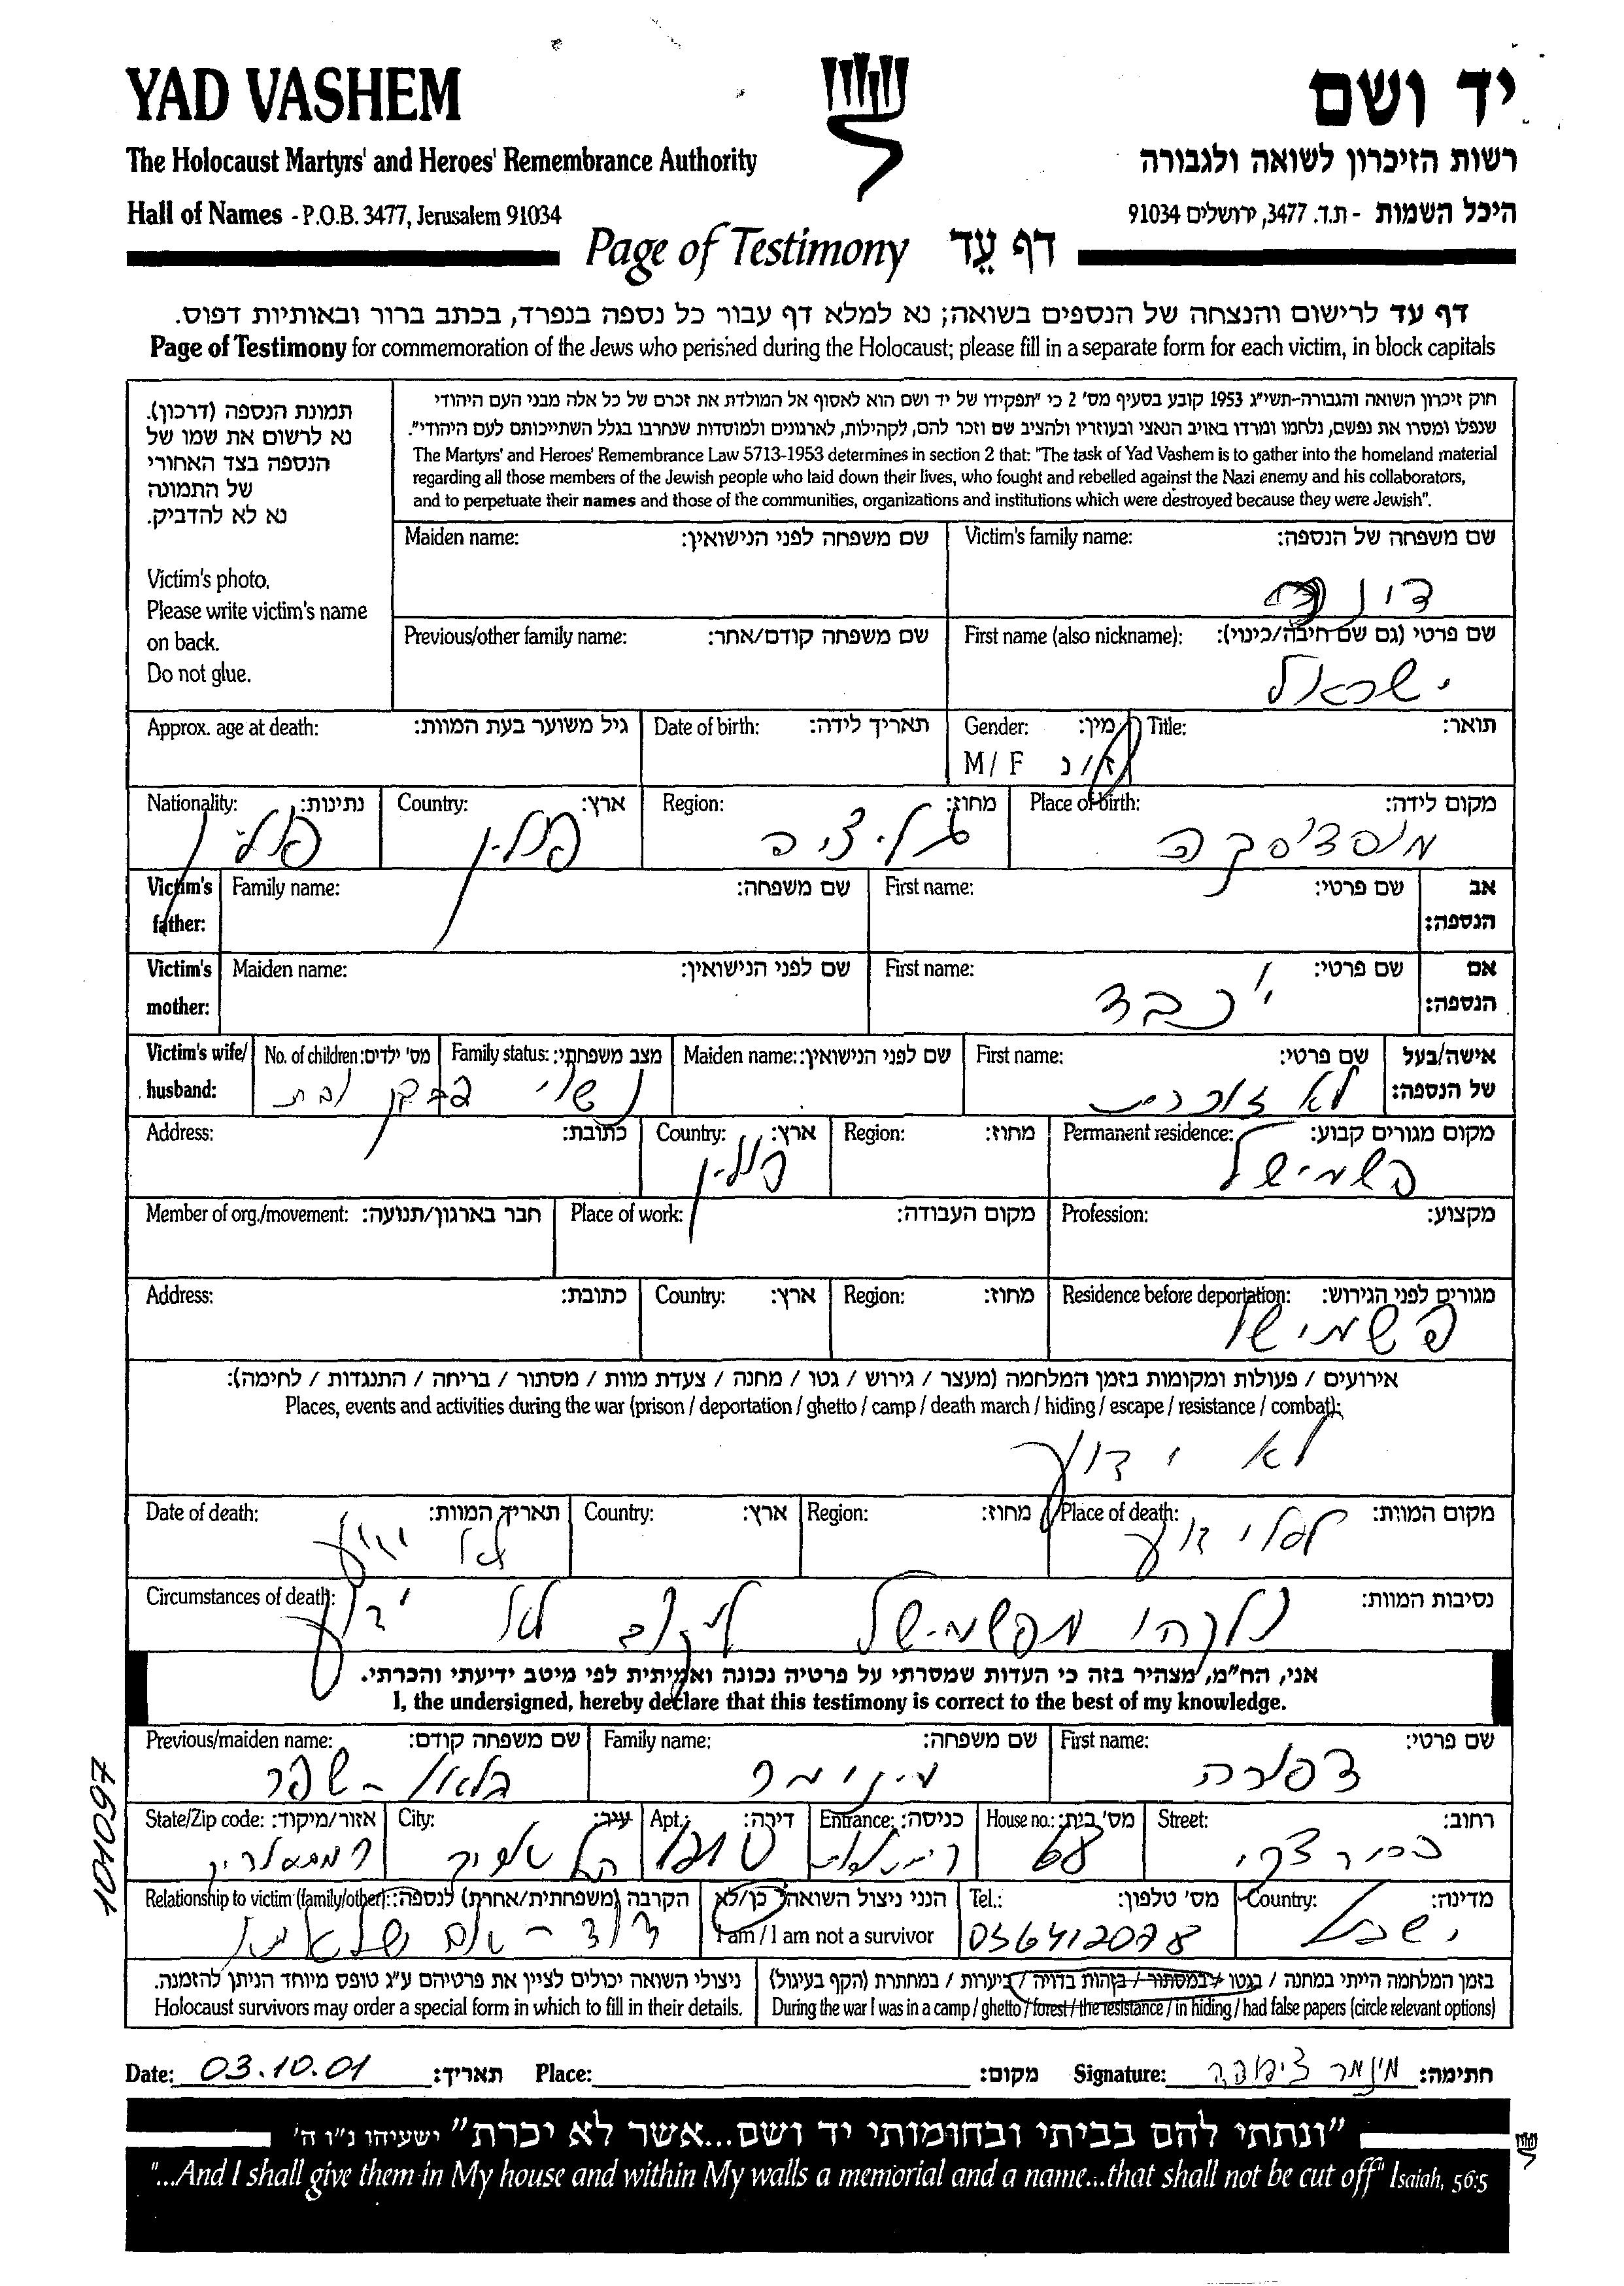 YAD VASHEM
יד ושם
The Holocaust Martyrs' and Heroes' Remembrance Authority
רשות הזיכרון לשואה ולגבורה
Hall of Names - P.O.B. 3477, Jerusalem 91034
היכל השמות - ת.ד. 3477, ירושלים 91034
Page of Testimony דף עֵד
דף עד לרישום והנצחה של הנספים בשואה; נא למלא דף עבור כל נספה בנפרד, בכתב ברור ובאותיות דפוס.
Page of Testimony for commemoration of the Jews who perished during the Holocaust; please fill in a separate form for each victim, in block capitals
תמונת הנספה (דרכון).
נא לרשום את שמו של
הנספה בצד האחורי
של התמונה
נא לא להדביק.
Victim's photo.
Please write victim's name
on back.
Do not glue.
חוק זיכרון השואה והגבורה-תשי"ג 1953 קובע בסעיף מס' 2 כי "תפקידו של יד ושם הוא לאסוף אל המולדת את זכרם של כל אלה מבני העם היהודי
שנפלו ומסרו את נפשם, נלחמו ומרדו באויב הנאצי ובעוזריו ולהציב שם וזכר להם, לקהילות, לארגונים ולמוסדות שנחרבו בגלל השתייכותם לעם היהודי".
The Martyrs' and Heroes' Remembrance Law 5713-1953 determines in section 2 that: "The task of Yad Vashem is to gather into the homeland material
regarding all those members of the Jewish people who laid down their lives, who fought and rebelled against the Nazi enemy and his collaborators,
and to perpetuate their names and those of the communities, organizations and institutions which were destroyed because they were Jewish".
Victim's family name: שם משפחה של הנספה:
Maiden name: שם משפחה לפני הנישואין:
First name (also nickname): שם פרטי (גם שם חיבה/כינוי):
ישראל
Previous/other family name: שם משפחה קודם/אחר:
Title: תואר:
Gender: מין:
M / F ז / נ
Date of birth: תאריך לידה:
Approx. age at death: גיל משוער בעת המוות:
Place of birth: מקום לידה:
Region: מחוז:
גליציה
Country: ארץ:
פולין
Nationality: נתינות:
פולין
Victim's father: אב הנספה:
First name: שם פרטי:
Family name: שם משפחה:
Victim's mother: אם הנספה:
First name: שם פרטי:
יוכבד
Maiden name: שם לפני הנישואין:
Victim's wife/husband: אישה/בעל של הנספה:
First name: שם פרטי:
לא זוכרת
Maiden name: שם לפני הנישואין:
Family status: מצב משפחתי:
נשוי
No. of children: מס' ילדים:
בן ובת
Permanent residence: מקום מגורים קבוע:
פשמישל
Region: מחוז:
Country: ארץ:
פולין
Address: כתובת:
Profession: מקצוע:
Place of work: מקום העבודה:
Member of org./movement: חבר בארגון/תנועה:
Residence before deportation: מגורים לפני הגירוש:
פשמישל
Region: מחוז:
Country: ארץ:
Address: כתובת:
אירועים / פעולות ומקומות בזמן המלחמה (מעצר / גירוש / גטו / מחנה / צעדת מוות / מסתור / בריחה / התנגדות / לחימה):
Places, events and activities during the war (prison / deportation / ghetto / camp / death march / hiding / escape / resistance / combat):
לא ידוע
Place of death: מקום המוות:
לא ידוע
Region: מחוז:
Country: ארץ:
Date of death: תאריך המוות:
לא ידוע
Circumstances of death: נסיבות המוות:
נלקחו מפשמישל לא ידוע
אני, הח"מ, מצהיר בזה כי העדות שמסרתי על פרטיה נכונה ואמיתית לפי מיטב ידיעתי והכרתי.
I, the undersigned, hereby declare that this testimony is correct to the best of my knowledge.
First name: שם פרטי:
צפורה
Family name: שם משפחה:
מינמר
Previous/maiden name: שם משפחה קודם:
Street: רחוב:
House no.: מס' בית:
Entrance: כניסה:
Apt.: דירה:
City: עיר:
State/Zip code: אזור/מיקוד:
Country: מדינה:
ישראל
Tel.: מס' טלפון:
036412078
הנני ניצול השואה כן/לא
I am / I am not a survivor
Relationship to victim (family/other): הקרבה (משפחתית/אחרת) לנספה:
בזמן המלחמה הייתי במחנה / בגטו / במסתור / בזהות בדויה / ביערות / במחתרת (הקף בעיגול)
During the war I was in a camp / ghetto / forest / the resistance / in hiding / had false papers (circle relevant options)
ניצולי השואה יכולים לציין את פרטיהם ע"ג טופס מיוחד הניתן להזמנה.
Holocaust survivors may order a special form in which to fill in their details.
101097
Date: 03.10.01 תאריך: Place: מקום: Signature: מינמר ציפורה חתימה:
"ונתתי להם בביתי ובחומותי יד ושם...אשר לא יכרת" ישעיהו נ"ו ה'
"...And I shall give them in My house and within My walls a memorial and a name...that shall not be cut off" Isaiah, 56:5